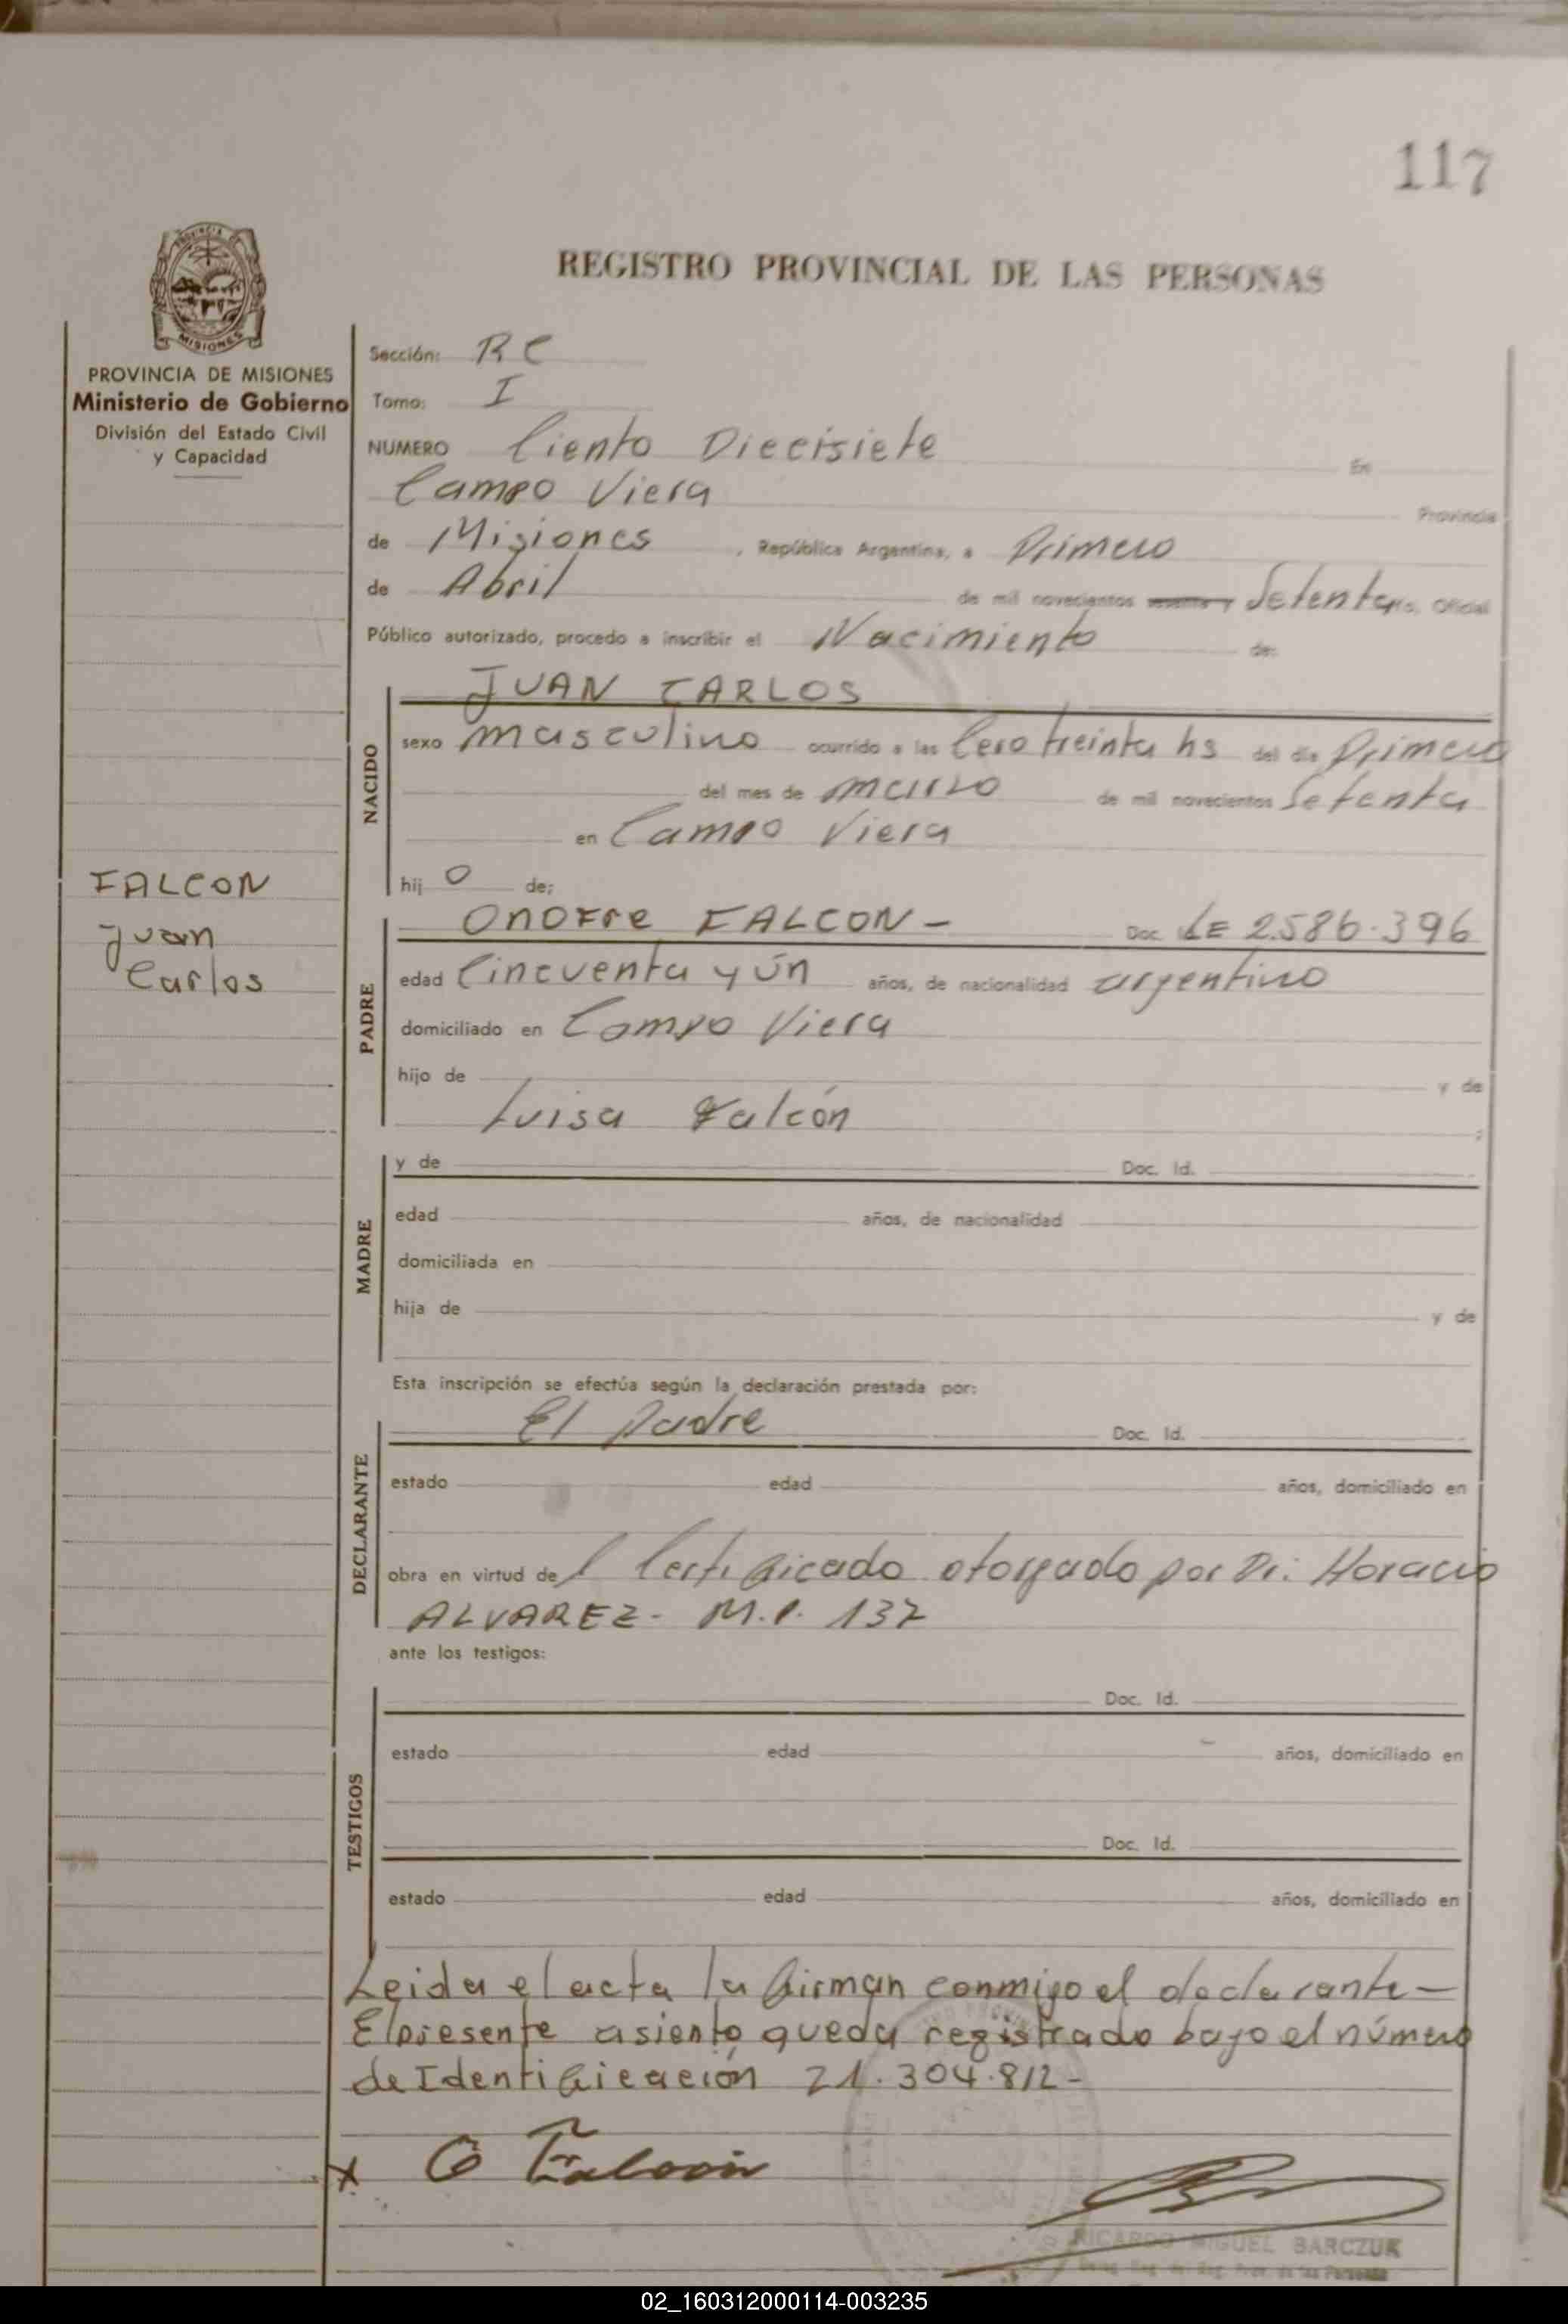 117
REGISTRO PROVINCIAL DE LAS PERSONAS
PROVINCIA DE MISIONES
Ministerio de Gobierno
División del Estado Civil
y Capacidad
Sección: RC
Tomo: I
NUMERO Ciento Diecisiete En
Campo Viera Provincia
de Misiones , República Argentina, a Primero
de Abril de mil novecientos sesenta y Setenta, Oficial
Público autorizado, procedo a inscribir el Nacimiento de:
NACIDO
JUAN CARLOS
sexo masculino ocurrido a las Cero treinta hs del día Primero
del mes de marzo de mil novecientos Setenta
en Campo Viera
hij o de:
FALCON
Juan
Carlos
PADRE
Onofre FALCON - Doc. LE 2.586.396
edad Cincuenta y ún años, de nacionalidad argentino
domiciliado en Campo Viera
hijo de y de
Luisa Falcón ;
MADRE
y de Doc. Id.
edad años, de nacionalidad
domiciliada en
hija de y de
Esta inscripción se efectúa según la declaración prestada por:
DECLARANTE
El padre Doc. Id.
estado edad años, domiciliado en
obra en virtud de l Certificado otorgado por Dr: Horacio
ALVAREZ- M.P. 137
ante los testigos:
TESTIGOS
Doc. Id.
estado edad años, domiciliado en
Doc. Id.
estado edad años, domiciliado en
Leida el acta la firman conmigo el declarante-
El presente asiento queda registrado bajo el número
de Identificación 21.304.812-
x O Falcón
RICARDO MIGUEL BARCZUK
02_160312000114-003235